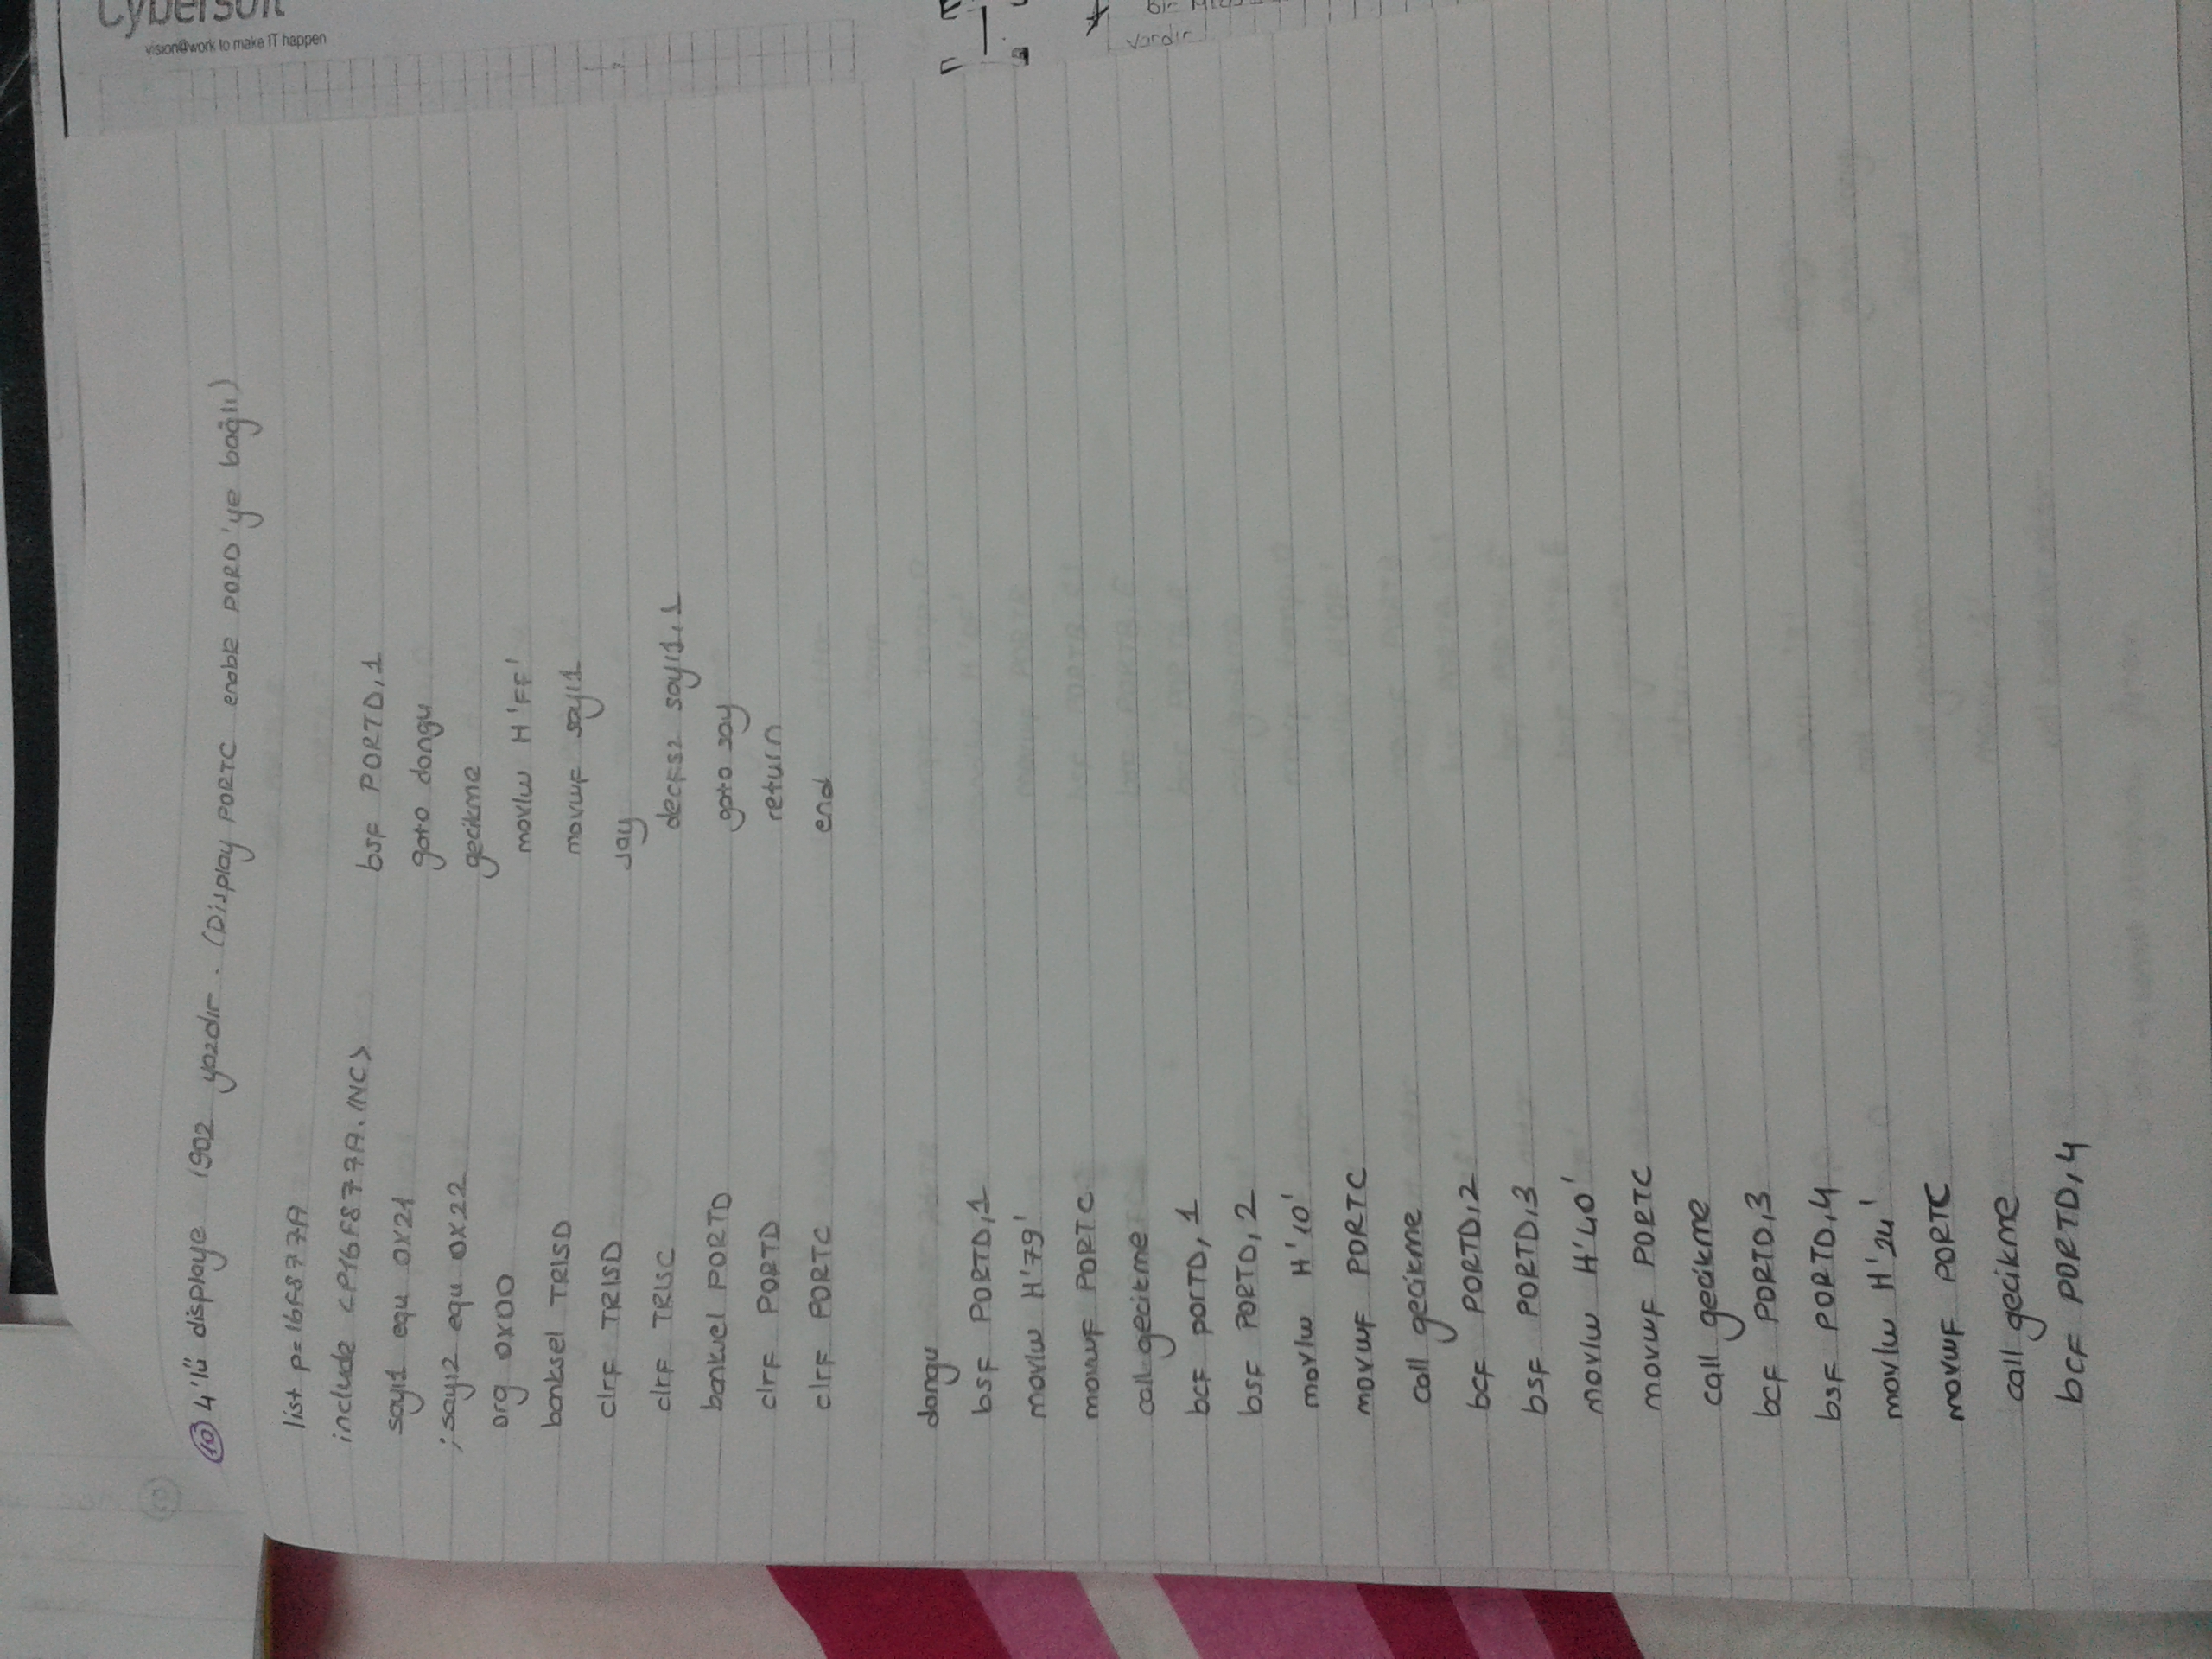 10 4'lü displaye 1902 yazdır. (Display PORTC enable PORD'ye bağlı)
list p=16F877A
include <P16F877A.INC>
sayı1 equ 0X21
;sayı2 equ 0X22
org 0X00
banksel TRISD
clrF TRISD
clrF TRISC
banksel PORTD
clrF PORTD
clrF PORTC
dongu
bsF PORTD,1
movlw H'79'
movwF PORTC
call gecikme
bcF porTD, 1
bsF PORTD, 2
movlw H'10'
movwF PORTC
call gecikme
bcF PORTD,2
bsF PORTD,3
movlw H'40'
movwF PORTC
call gecikme
bcF PORTD,3
bsF PORTD,4
movlw H'24'
movwF PORTC
call gecikme
bcF PORTD,4
bsF PORTD,1
goto dongu
gecikme
movlw H'FF'
movwF sayı1
say
decFsz sayı1,1
goto say
return
end
cybersoft
vision@work to make IT happen
vardır